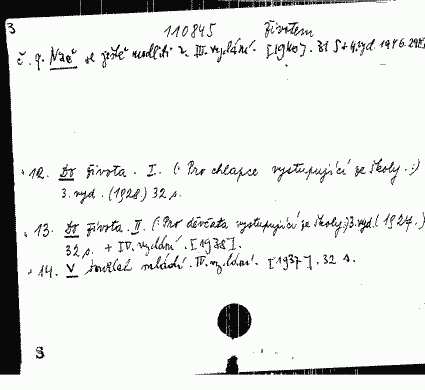 3
110845 Životem
č. 9. Nač se ještě modliti 2. III. vydání. [1940]. 31 s + 4. vyd. 1946.
12. Do života. I. (: Pro chlapce vystupující ze školy. :)
3. vyd. (1928) 32 s.
13. Do života. II. (: Pro děvčata vystupující ze školy :) 3. vyd. (1927.)
32 s. + IV. vydání. [1938].
14. V mládí. IV. vydání. [1937]. 32 s.
S